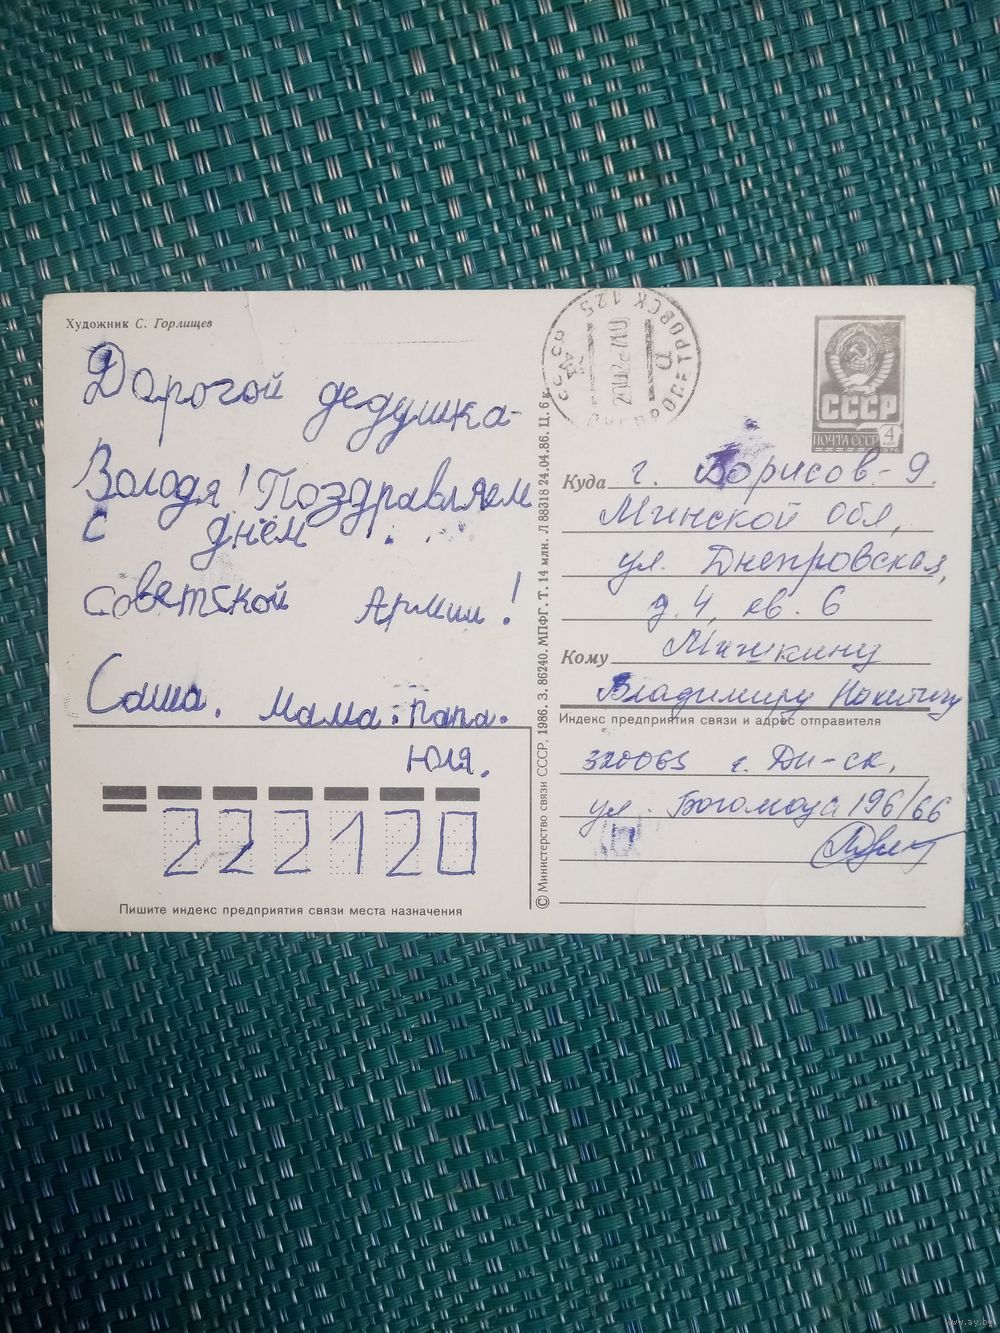 Художник С. Горлищев
Дорогой дедушка
Володя! Поздравляем
с днём
советской Армии!
Саша. мама. папа.
Юля.
222120
Пишите индекс предприятия связи места назначения
© Министерство связи СССР, 1986. З. 86240. МПФГ. Т. 14 млн. Л 88318 24.04.86. Ц. 6 к.
СССР
ПОЧТА СССР 4
Куда г. Борисов-9.
Минской обл,
ул. Днепровская,
д. 4, кв. 6
Кому Мишкину
Владимиру Никитичу
Индекс предприятия связи и адрес отправителя
320065 г. Дн-ск,
ул. 196/66
www.ay.by